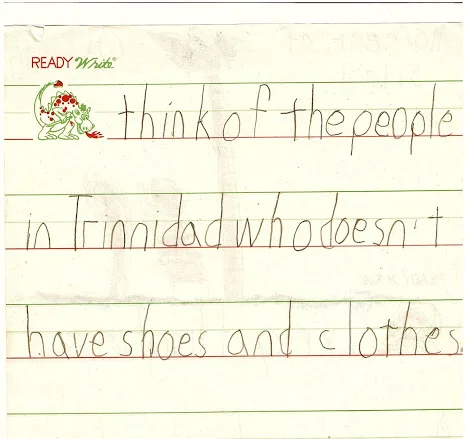 READY Write®
think of the people
in Trinnidad who doesn't
have shoes and clothes.